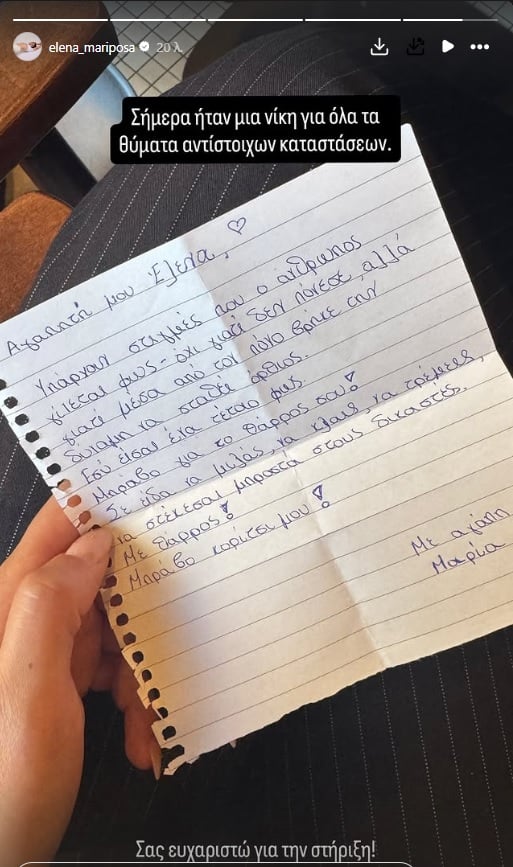 elena_mariposa 20 λ.
Σήμερα ήταν μια νίκη για όλα τα
θύματα αντίστοιχων καταστάσεων.
Αγαπητή μου Έλενα, ♡
Υπάρχουν στιγμές που ο άνθρωπος
γίνεται φως - όχι γιατί δεν πόνεσε, αλλά
γιατί μέσα από τον πόνο βρήκε την
δύναμη να σταθεί όρθιος.
Εσύ είσαι ένα τέτοιο φως.
Μπράβο για το θάρρος σου!
Σε είδα να μιλάς, να κλαις, να τρέμεις,
να στέκεσαι μπροστά στους δικαστές.
Με θάρρος!
Μπράβο κορίτσι μου!
Με αγάπη
Μαρία
Σας ευχαριστώ για την στήριξη!